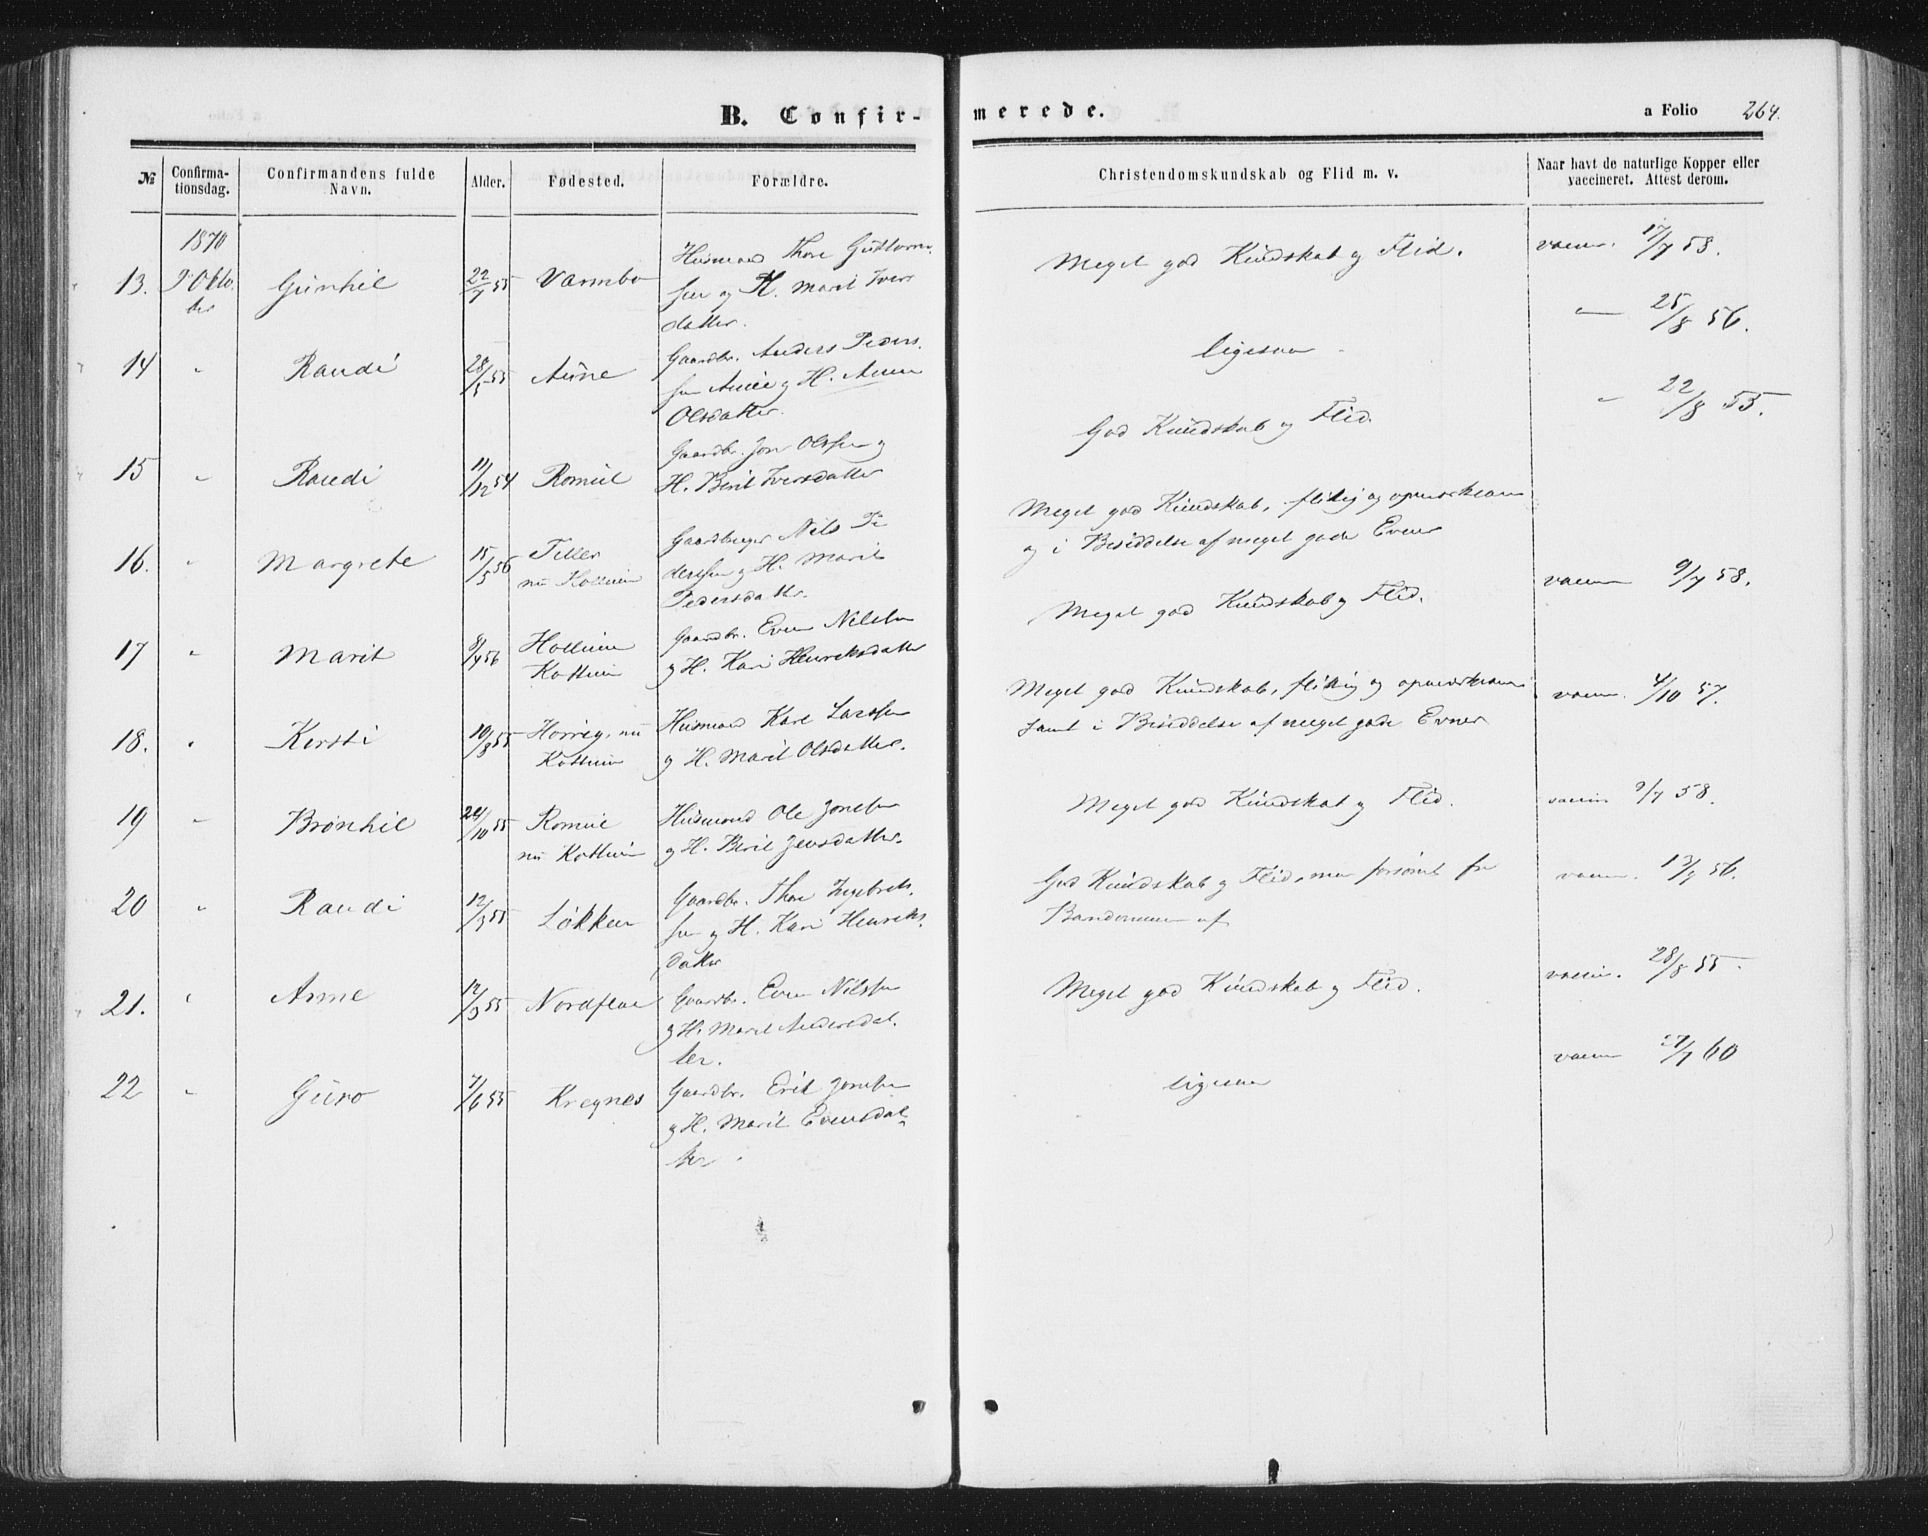 B. Confir-
merede.
a Folio 264.
№
Confirma-
tionsdag.
Confirmandens fulde
Navn.
Alder.
Fødested.
Forældre.
Christendomskundskab og Flid m. v.
Naar havt de naturlige Kopper eller
vaccineret. Attest derom.
1870
13. Gunhil 22/7 55 Varmbo
Husmand Thore Guttorm
sen og H. Marit Iver
datter.
Meget god Kundskab og Flid. vaccin. 17/7 58.
14 " Randi 28/5 55 Aune
Gaardbr. Anders Peders
sen Aune og H. Anne
Olsdatter.
ligesaa
" 25/8 56.
15 " Randi 11/12 54 Romul
Gaardbr. Jon Olssen og
H. Berit Iversdatter
God Kundskab og Flid.
" 22/8 55.
16. " Margrete 15/5 56 Tiller
nu Kottum
Gaardbruger Nils Pe
dersen og H. Marit
Pedersdatter.
Meget god Kundskab, flittig og opmærksom
og i Besiddelse af meget gode Evner
17 " Marit 8/4 56
Kottum
Gaardbr. Even Nilssen
og H. Kari Henriksdatter
Meget god Kundskab og Flid.
vaccin 9/7 58.
18. " Kersti 10/8 55 Horrig, nu
Kottum
Husmand Karl Larssen
og H. Marit Olsdatter.
Meget god Kundskab, flittig og opmærksom
samt i Besiddelse af meget gode Evner
vaccin. 4/10 57.
19 " Brønhil 24/10 55 Romul
nu Kottum
Husmand Ole Jonsen
og H. Berit Jensdatter.
Meget god Kundskab og Flid.
vaccin 9/7 58.
20 " Randi 12/3 55 Løkken
Gaardbr. Thore Ingebrigts
sen og H. Kari Henriks
datter
God Kundskab og Flid, men forsømt fra
Barndommen af
vaccin. 13/9 56.
21. " Anne 12/9 55 Nordflaa
Gaardbr. Even Nilssen
og H. Marit Andersdat
ter.
Meget god Kundskab og Flid.
vaccin. 28/8 55.
22 " Guro 7/6 55 Kregnes
Gaardbr. Erik Jonsen
og H. Marit Evensdat-
ter.
ligesaa
vaccin 27/7 60